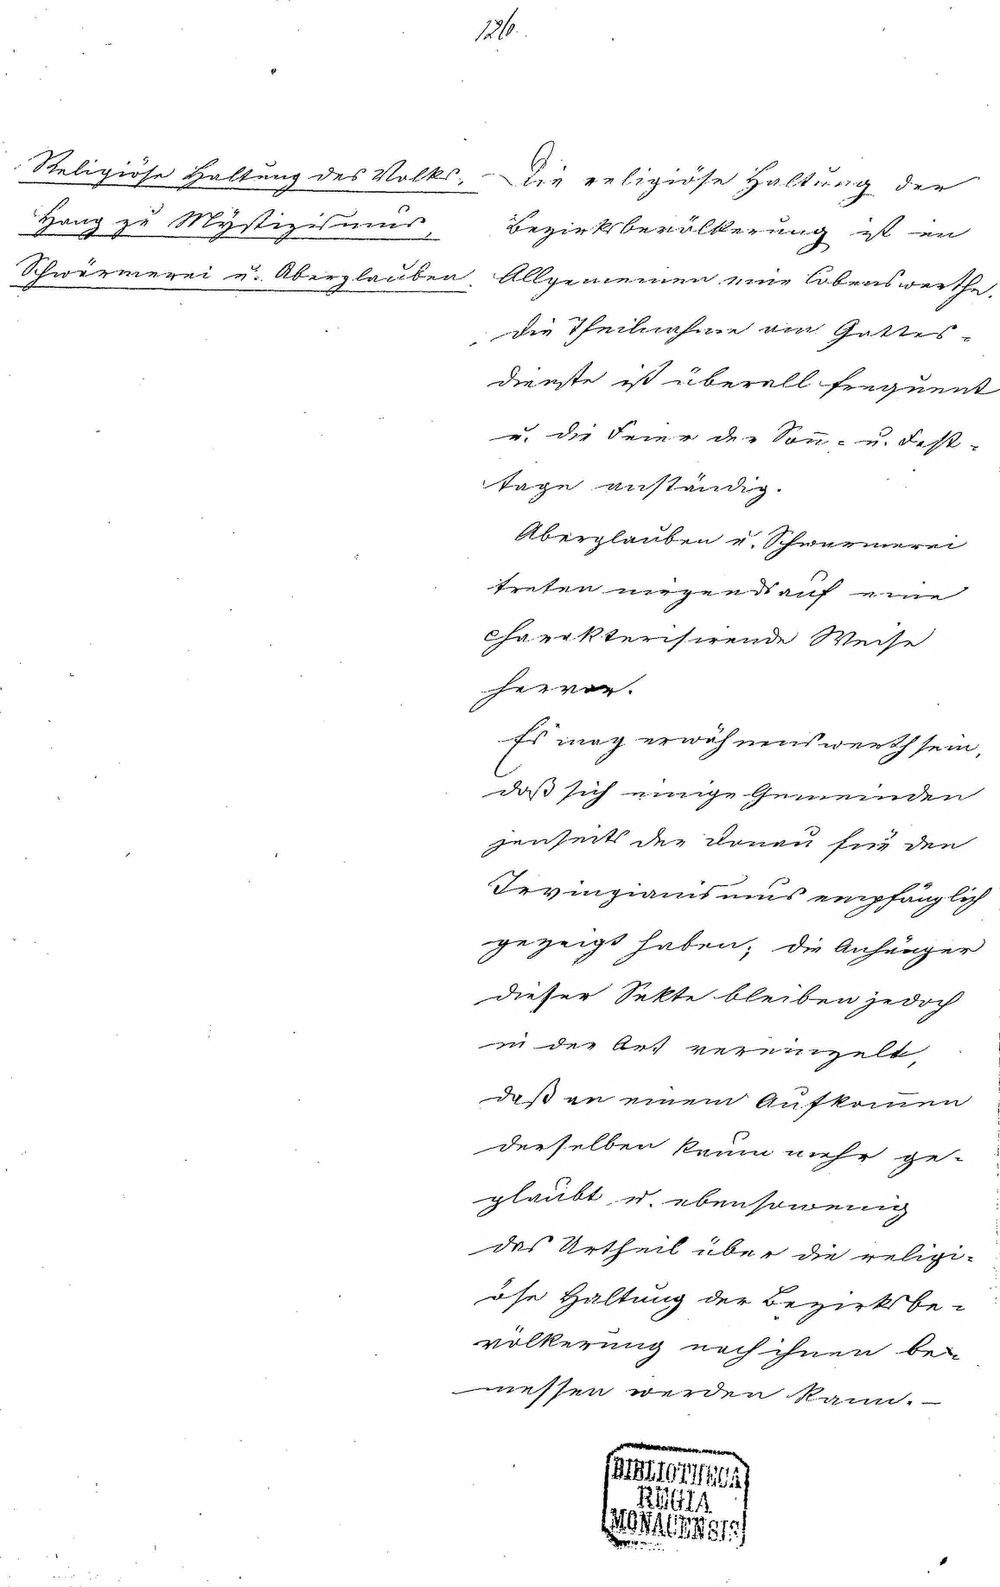 126.
Religiöse Haltung des Volks,
Hang zu Mystizismus,
Schwärmerei u. Aberglauben.
Die religiöse Haltung der
Bezirksbevölkerung ist im
Allgemeinen eine lobenswerthe.
Die Theilnahme am Gottes-
dienste ist überall frequent
u. die Feier der Son̄- u. Fest-
tage anständig.
Aberglauben u. Schwärmerei
treten nirgends auf eine
charakterisirende Weise
hervor.
Es mag erwähnenswerth sein,
daß sich einige Gemeinden
jenseits der Donau für den
Irvingianismus empfänglich
gezeigt haben; die Anhänger
dieser Sekte bleiben jedoch
in der Art vereinzelt,
daß an einem Aufkom̄en
derselben kaum mehr ge-
glaubt u. ebensowenig
das Urtheil über die religi-
öse Haltung der Bezirksbe-
völkerung nach ihnen be-
messen werden kann. —
BIBLIOTHECA
REGIA
MONACENSIS